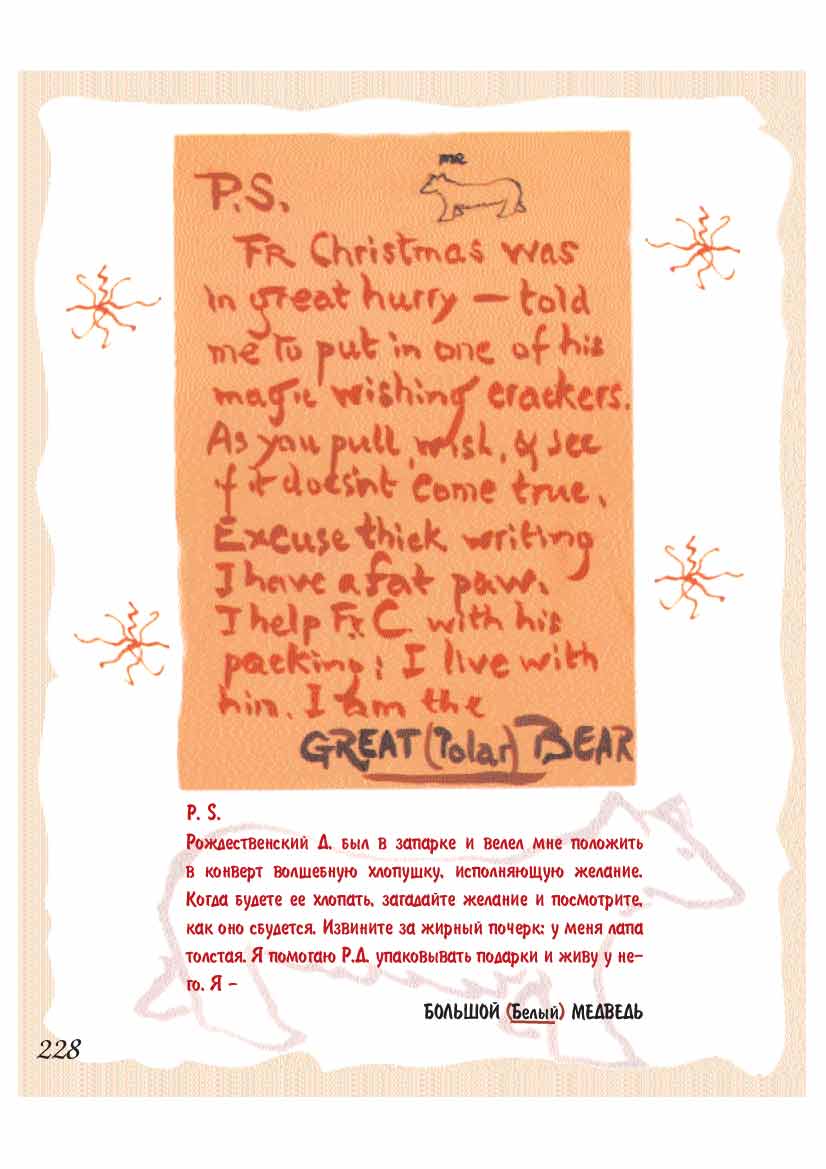 me
P.S.
FR Christmas was
in great hurry — told
me to put in one of his
magic wishing crackers.
As you pull, wish, & see
if it doesn't come true.
Excuse thick writing
I have a fat paw.
I help Fr. C. with his
packing: I live with
him. I am the
GREAT (Polar) BEAR
P. S.
Рождественский Д. был в запарке и велел мне положить
в конверт волшебную хлопушку, исполняющую желание.
Когда будете ее хлопать, загадайте желание и посмотрите,
как оно сбудется. Извините за жирный почерк: у меня лапа
толстая. Я помогаю Р.Д. упаковывать подарки и живу у не-
го. Я –
БОЛЬШОЙ (Белый) МЕДВЕДЬ
228